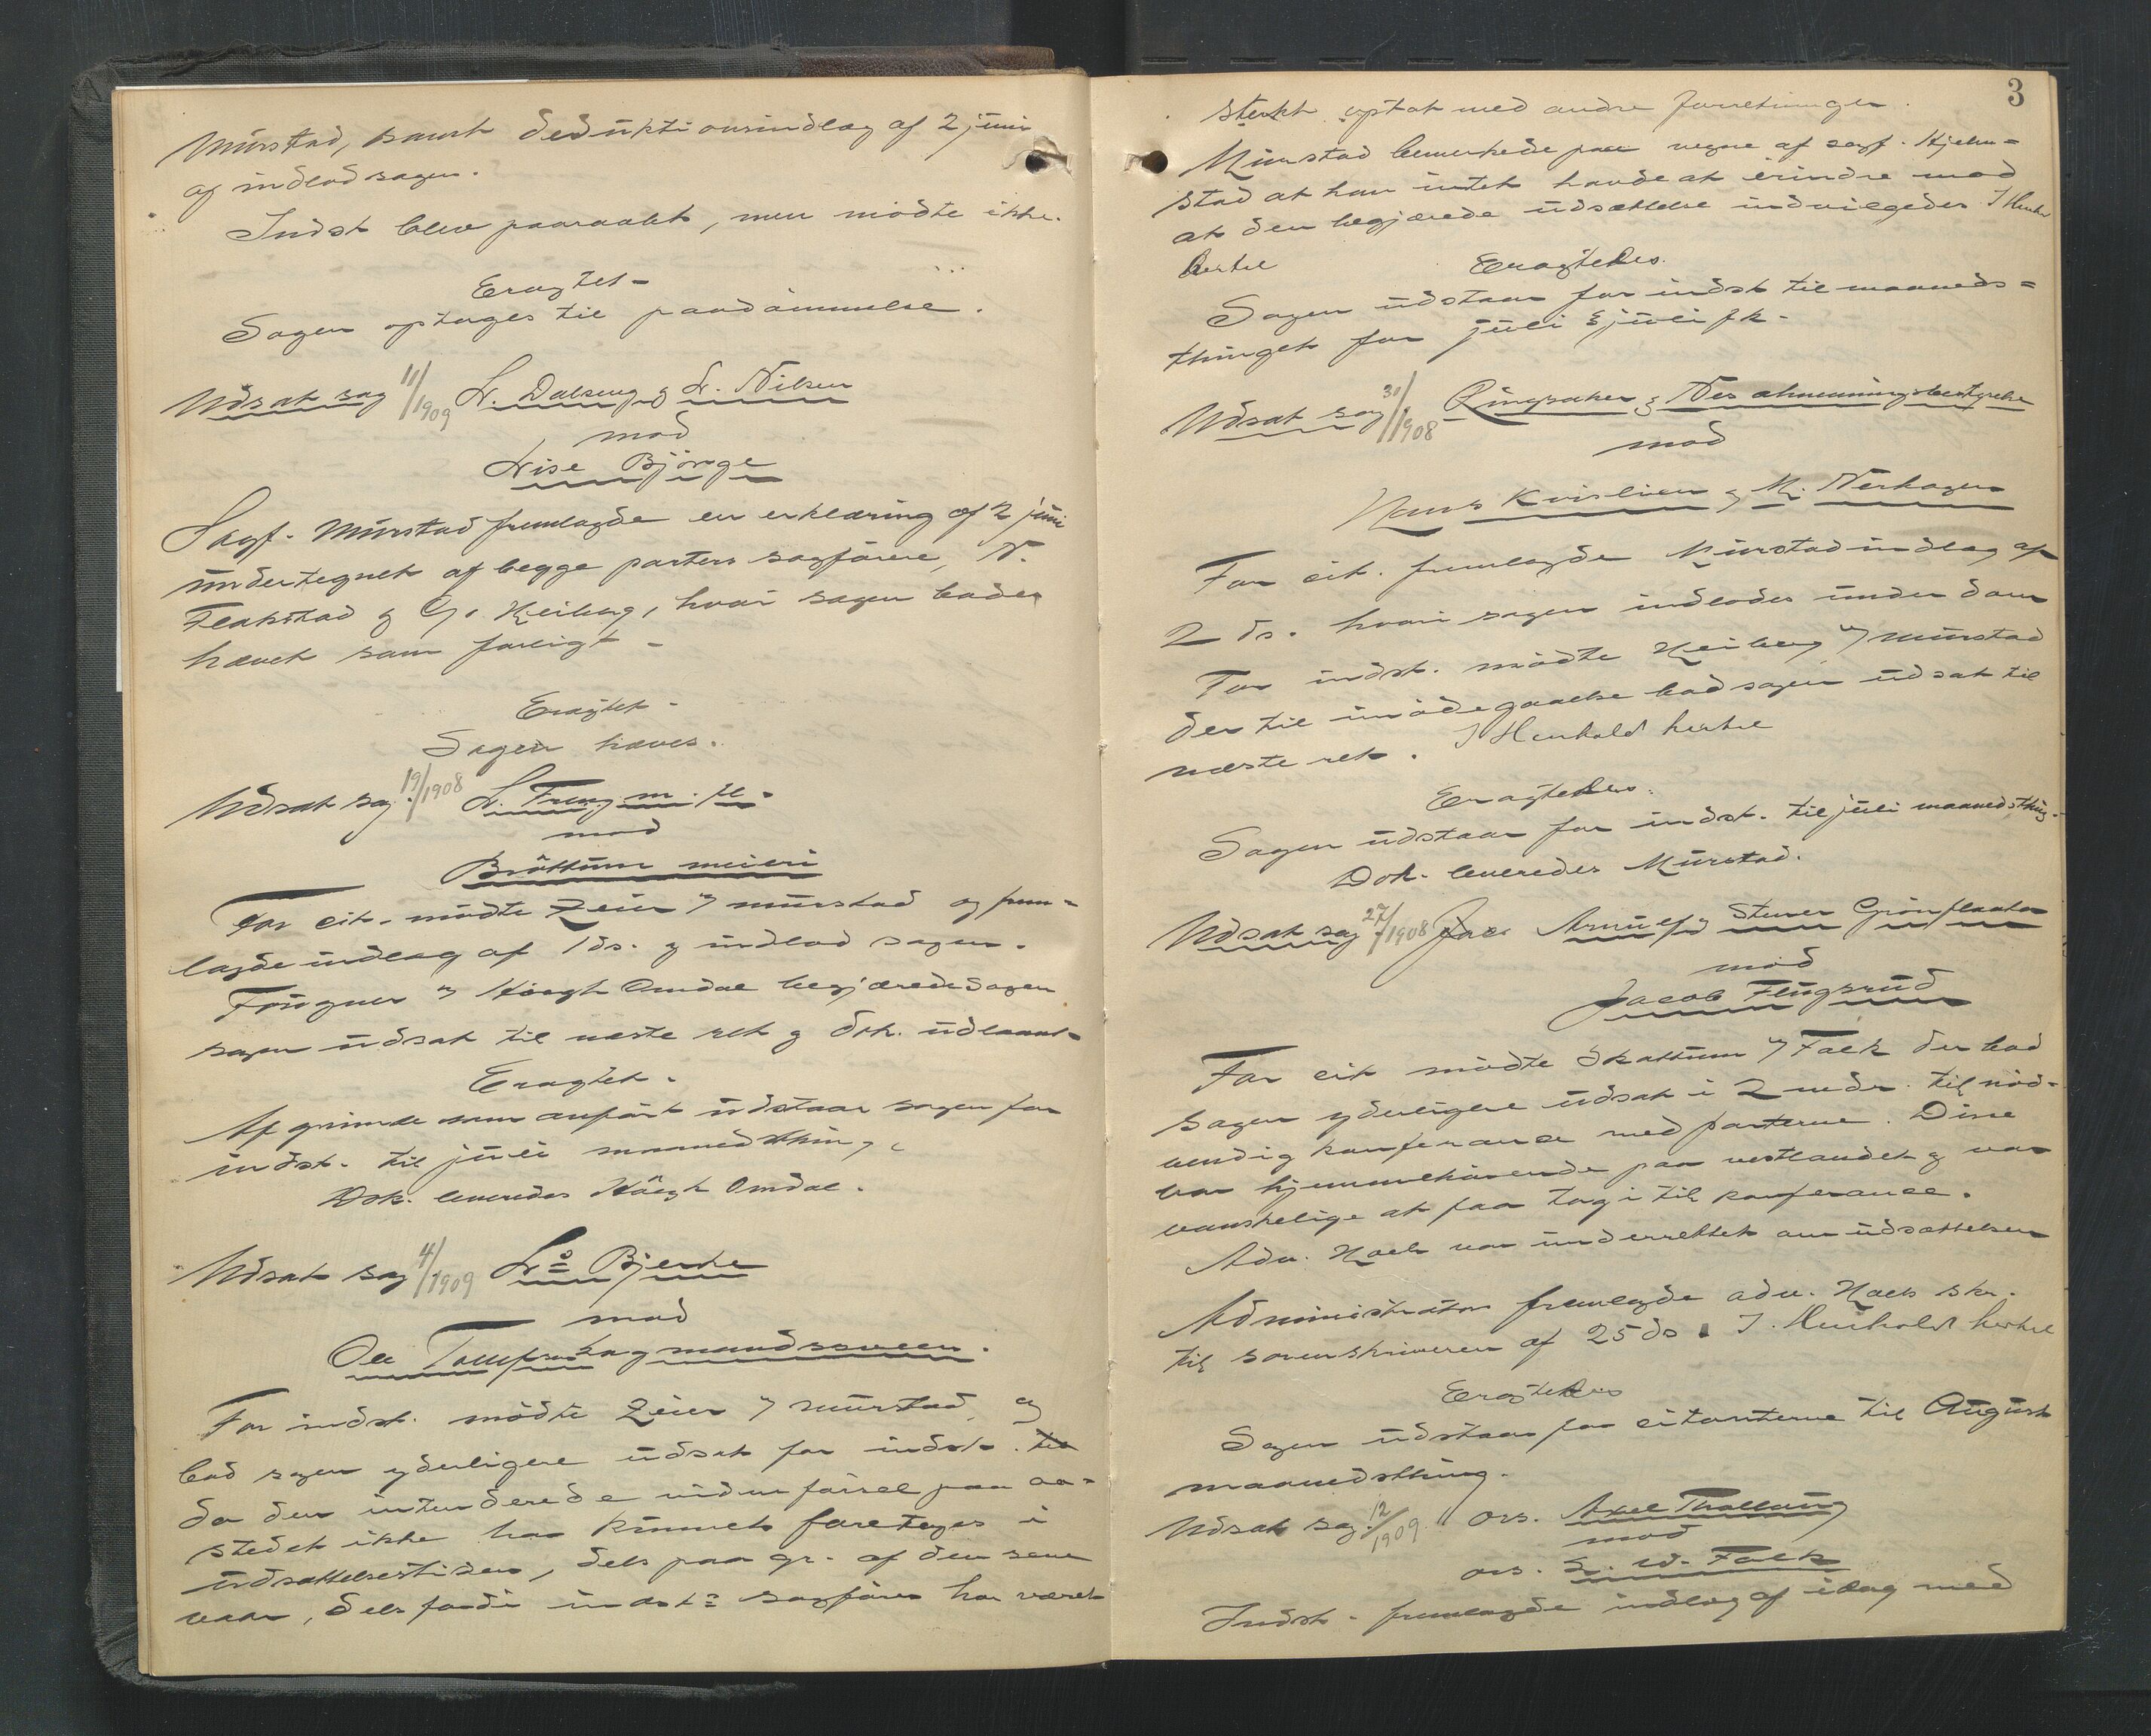 Mürstad, samt deduktionsindlæg af 2 juni
og indlod sagen.
Indst blev paaraabt, men mødte ikke.
Eragtet-
Sagen optages til paadømmelse.
Udsat sag 11/1909 L. Dalseng og L. Nilsen
mod
Lise Bjørge
Sagf. Mürstad fremlagde en erklæring af 2 juni
undertegnet af begge parters sagførere, N.
Flakstad og G. Heiberg, hvori sagen bades
hævet som forligt -
Eragtet-
Sagen hæves.
Udsat sag 19/1908 L. Freng m. fl.
mod
Brøttum meieri
For cit. mødte Zeier v/ Mürstad og frem-
lagde indlæg af 1 ds. og indlod sagen.
Fougner v/ Høegh Omdal begjærede sagen
sagen udsat til næste ret og dok. udlaant-
Eragtet.
Af grunde som anført udstaar sagen for
indst. til juli maanedsthing.
Dok. leveredes Høegh Omdal.
Udsat sag 4/1909 Ls Bjerke
mod
Ole mandssveen.
For indst. mødte Zeier v/ Mürstad, og
bad sagen yderligere udsat for indst. til
da den intenderede vidneførsel paa aa-
stedet ikke har kunnet foretages i
udsættelsestiden, dels paa gr. af den sene
vaar, dels fordi indst:s sagfører har været
3
sterkt optat med andre forretninger.
Mürstad bemerkede paa vegne af sagf. Hjelm-
stad at han intet havde at erindre mod
at den begjærede udsættelse indvilgedes I Henh
hertil Eragtedes.
Sagen udstaar for indst til maaneds-
thinget for juli juli fk-
Udsat sag 31/1908 Ringsaker og Nes almenningsbestyrelse
mod
Hans Kvisliien og M. Nerhagen
For cit. fremlagde Mürstad indlæg af
2 ds. hvori sagen indlodes under dom
For indst. mødte Heiberg v/ Mürstad
der til imødegaaelse bad sagen udsat til
næste ret. I Henhold hertil
Eragtedes.
Sagen udstaar for indst. til juli maanedsthing-
Dok. leveredes Mürstad.
Udsat sag 27/1908 Arnulf og Sturer Grønflaaten
mod
Jacob Flugsrud
For cit mødte Skattum v/ Falk der bad
sagen yderligere udsat i 2 mdr. til nød-
vendig konferance med parterne. Disse
var hjemmehørende paa vestlandet og var
vanskelige at faa tag i til konferance.
Adv. Hoel var underrettet om udsættelsen
Administrator fremlagde adv. Hoels skr.
til sorenskriveren af 25 ds. I. Henhold hertil
Eragtedes
Sagen udstaar for citanterne til August
maanedsthing.
Udsat sag 12/1909 ors. Axel Thallaug
mod
ors. L. W. Falk
Indst. fremlagde indlæg af idag med